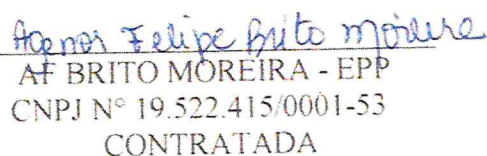 Agenor Felipe Brito Moreira
AF BRITO MOREIRA - EPP
CNPJ N° 19.522.415/0001-53
CONTRATADA